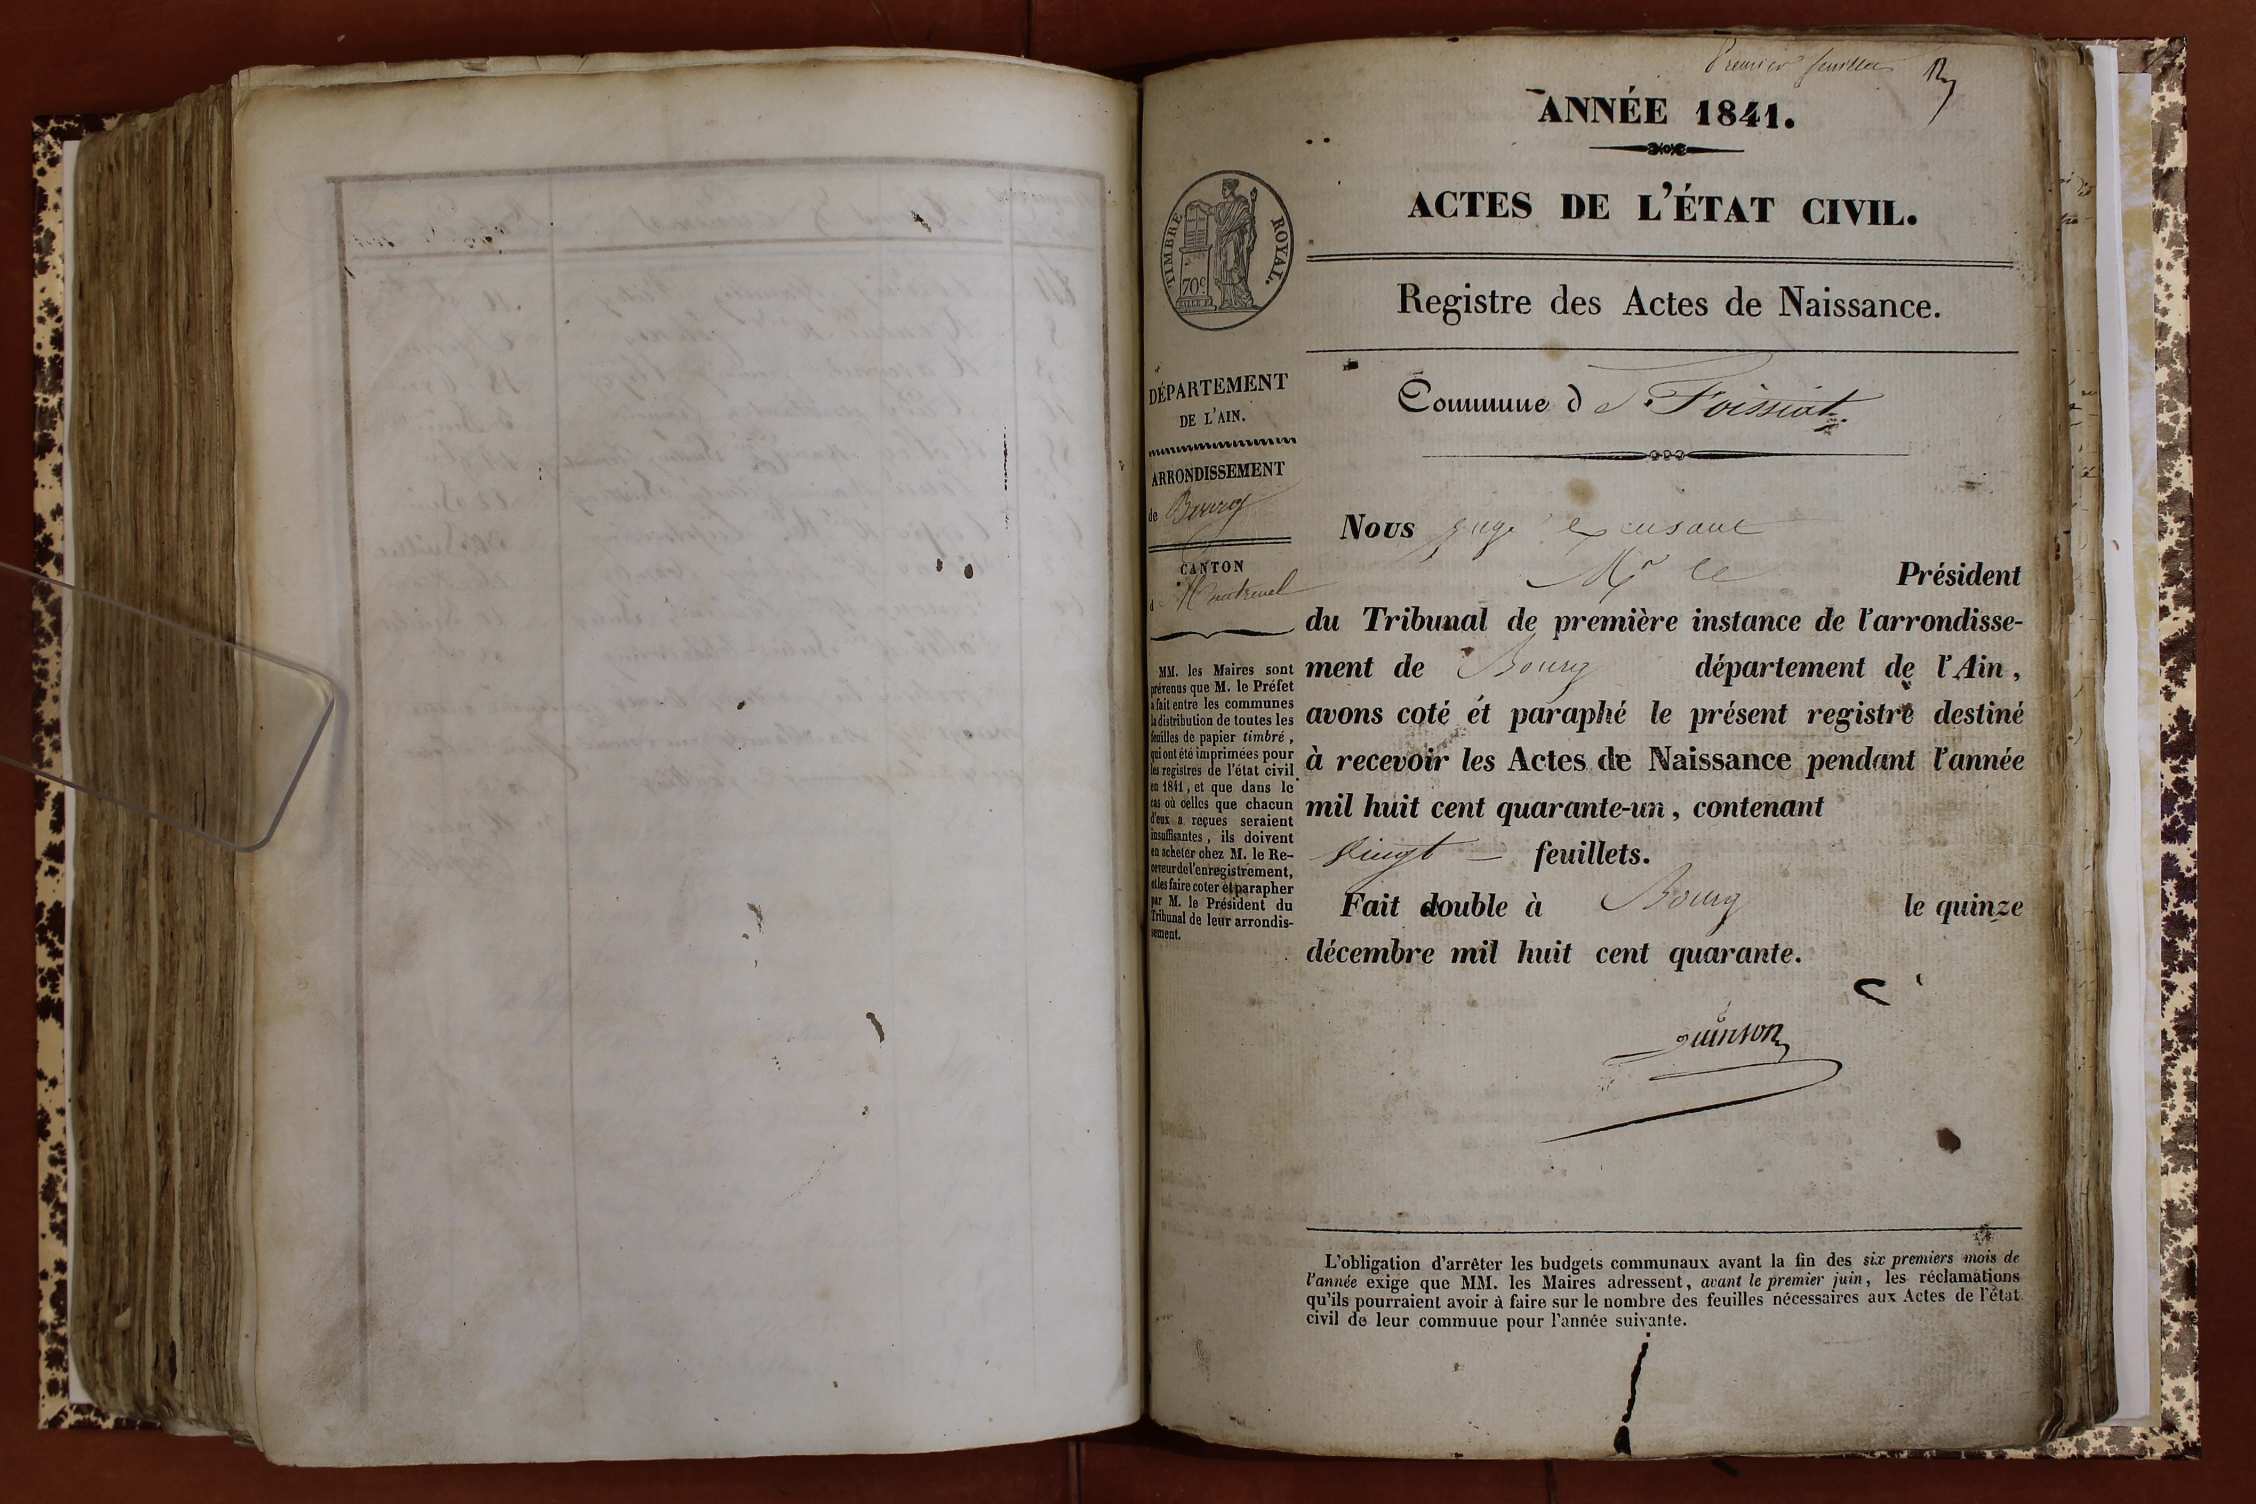 Premier feuillet
ANNÉE 1841.
ACTES DE L'ÉTAT CIVIL.
TIMBRE ROYAL.
70c
Registre des Actes de Naissance.
DÉPARTEMENT
DE L'AIN.
ARRONDISSEMENT
de Bourg
CANTON
d Montrevel
MM. les Maires sont
prévenus que M. le Préfet
a fait entre les communes
la distribution de toutes les
feuilles de papier timbré,
qui ont été imprimées pour
les registres de l'état civil
en 1841, et que dans le
cas où celles que chacun
d'eux a reçues seraient
insuffisantes, ils doivent
en acheter chez M. le Re-
ceveur de l'enregistrement,
et les faire coter et parapher
par M. le Président du
Tribunal de leur arrondis-
sement.
Commune d Foissiat
Nous juge excusant
Mr le Président
du Tribunal de première instance de l'arrondisse-
ment de Bourg département de l'Ain,
avons coté et paraphé le présent registre destiné
à recevoir les Actes de Naissance pendant l'année
mil huit cent quarante-un, contenant
Vingt feuillets.
Fait double à Bourg le quinze
décembre mil huit cent quarante.
Quinson
L'obligation d'arrêter les budgets communaux avant la fin des six premiers mois de
l'année exige que MM. les Maires adressent, avant le premier juin, les réclamations
qu'ils pourraient avoir à faire sur le nombre des feuilles nécessaires aux Actes de l'état
civil de leur commuue pour l'année suivante.